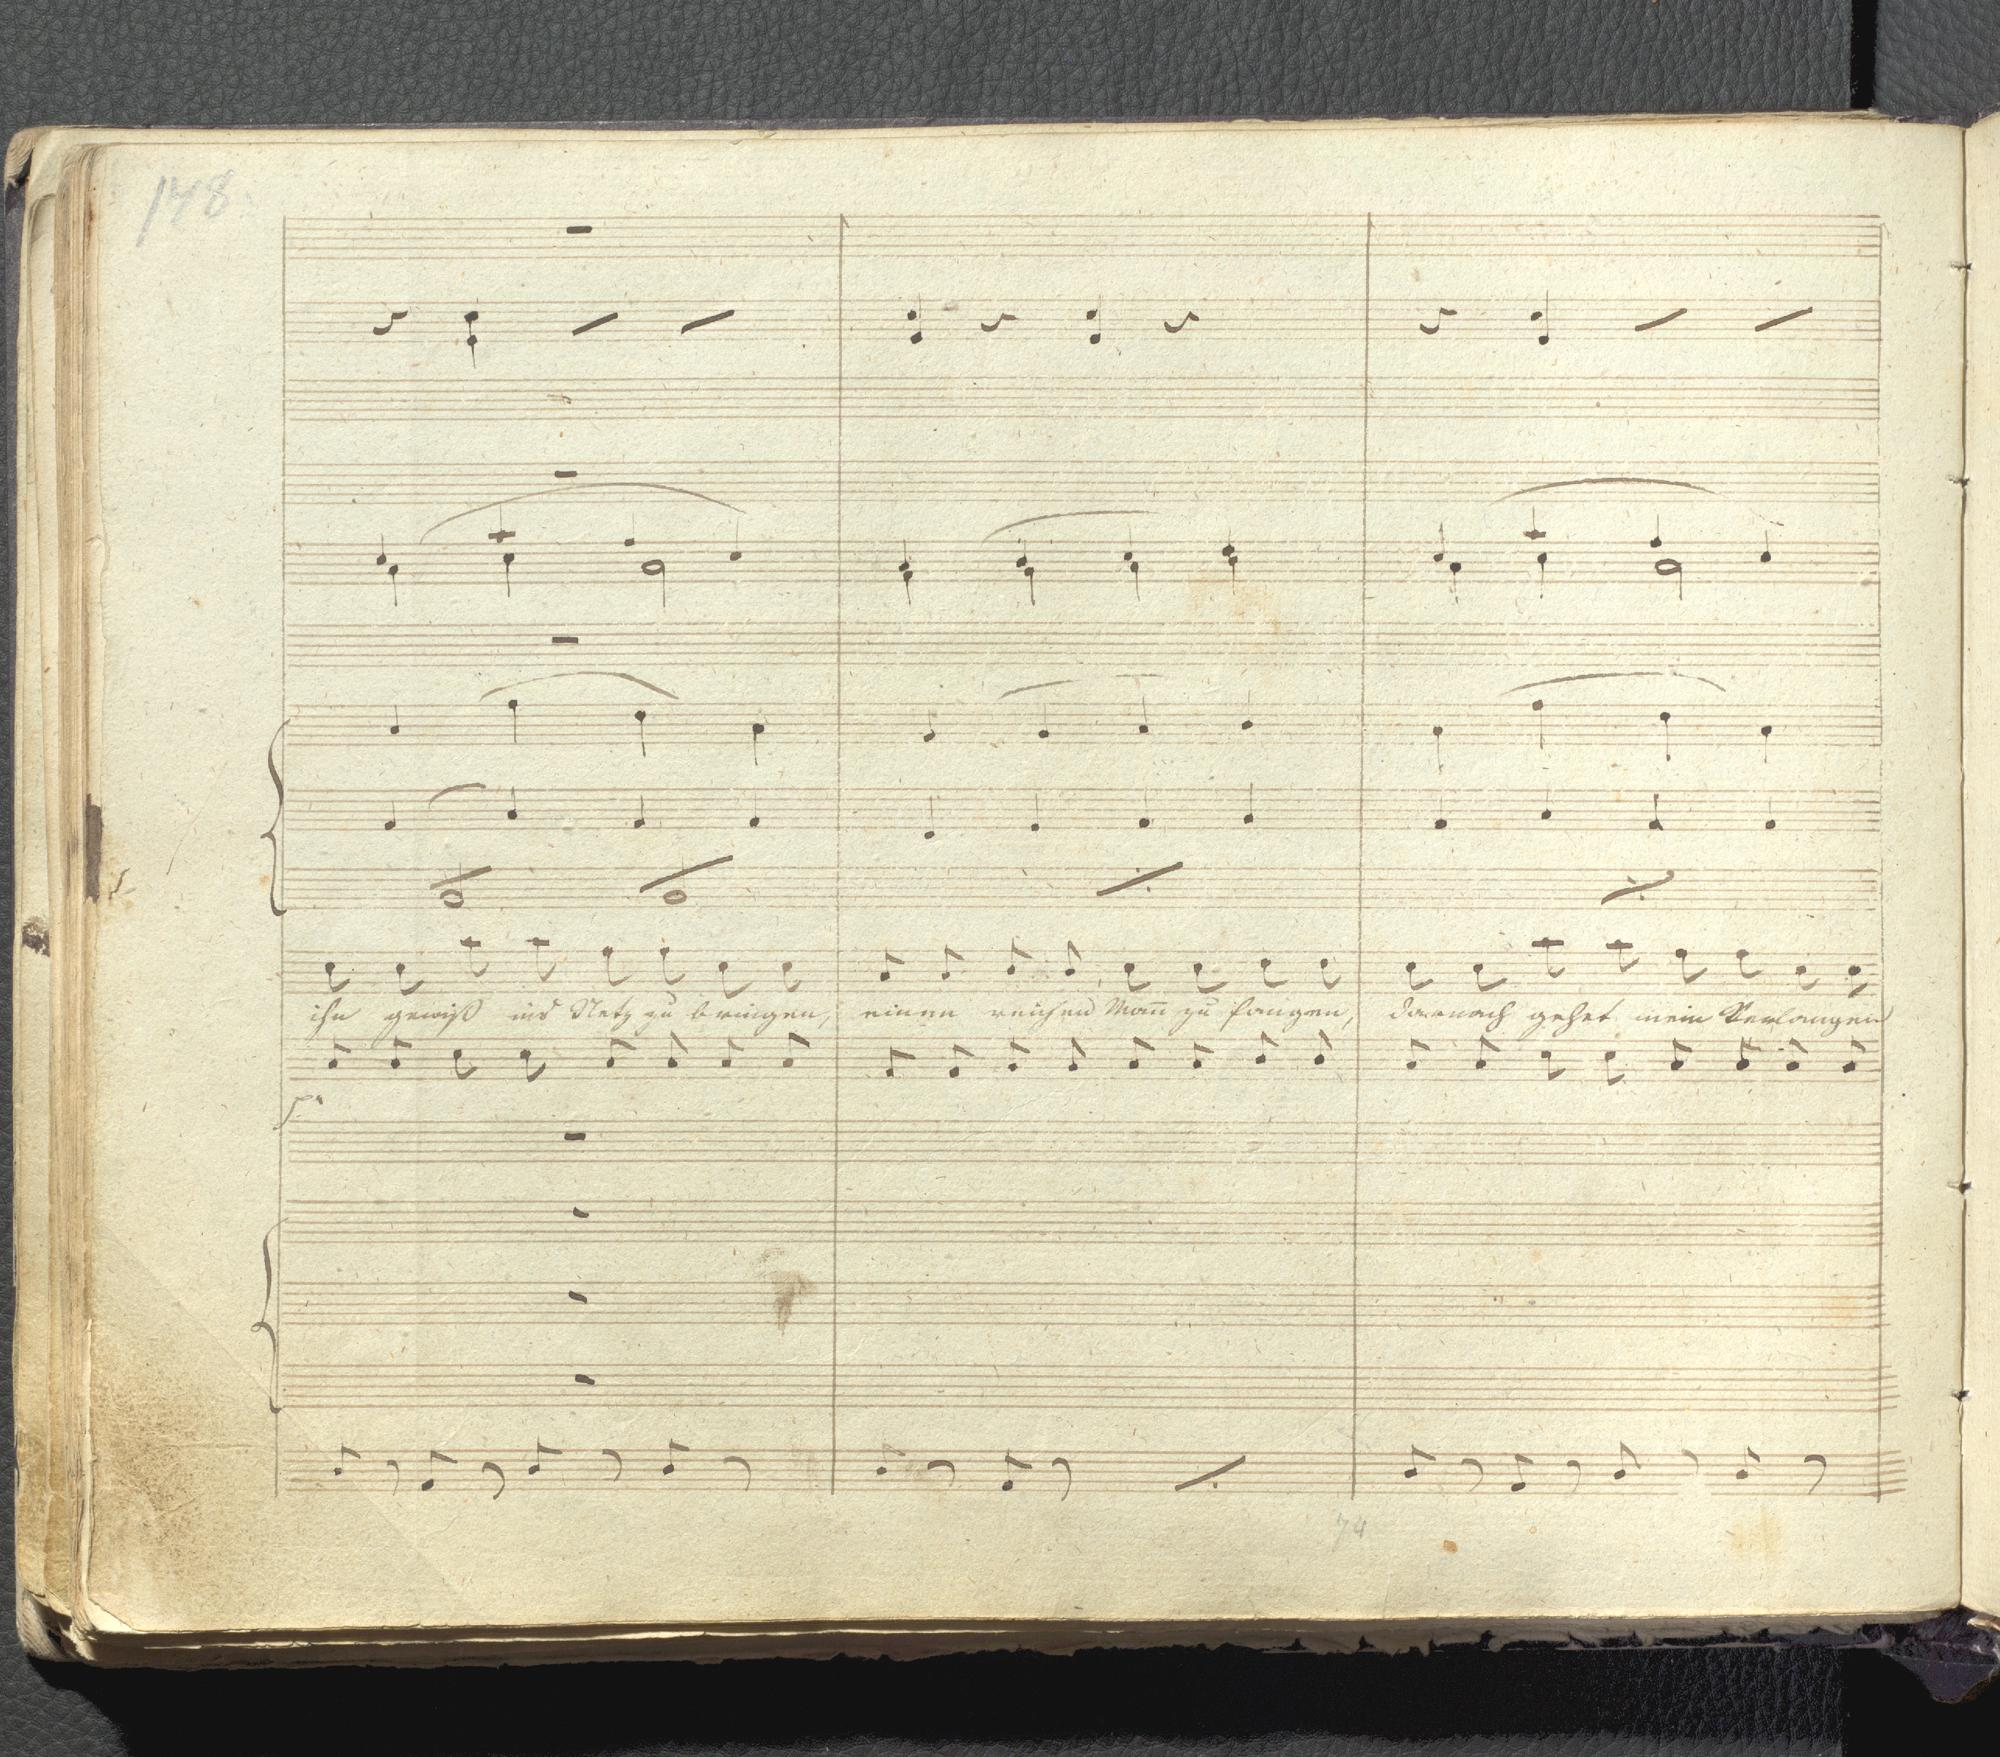 148
ihn gewiß ins Netz zu bringen, einen reichen Mañ zu fangen, darnach gehet mein Verlangen
74